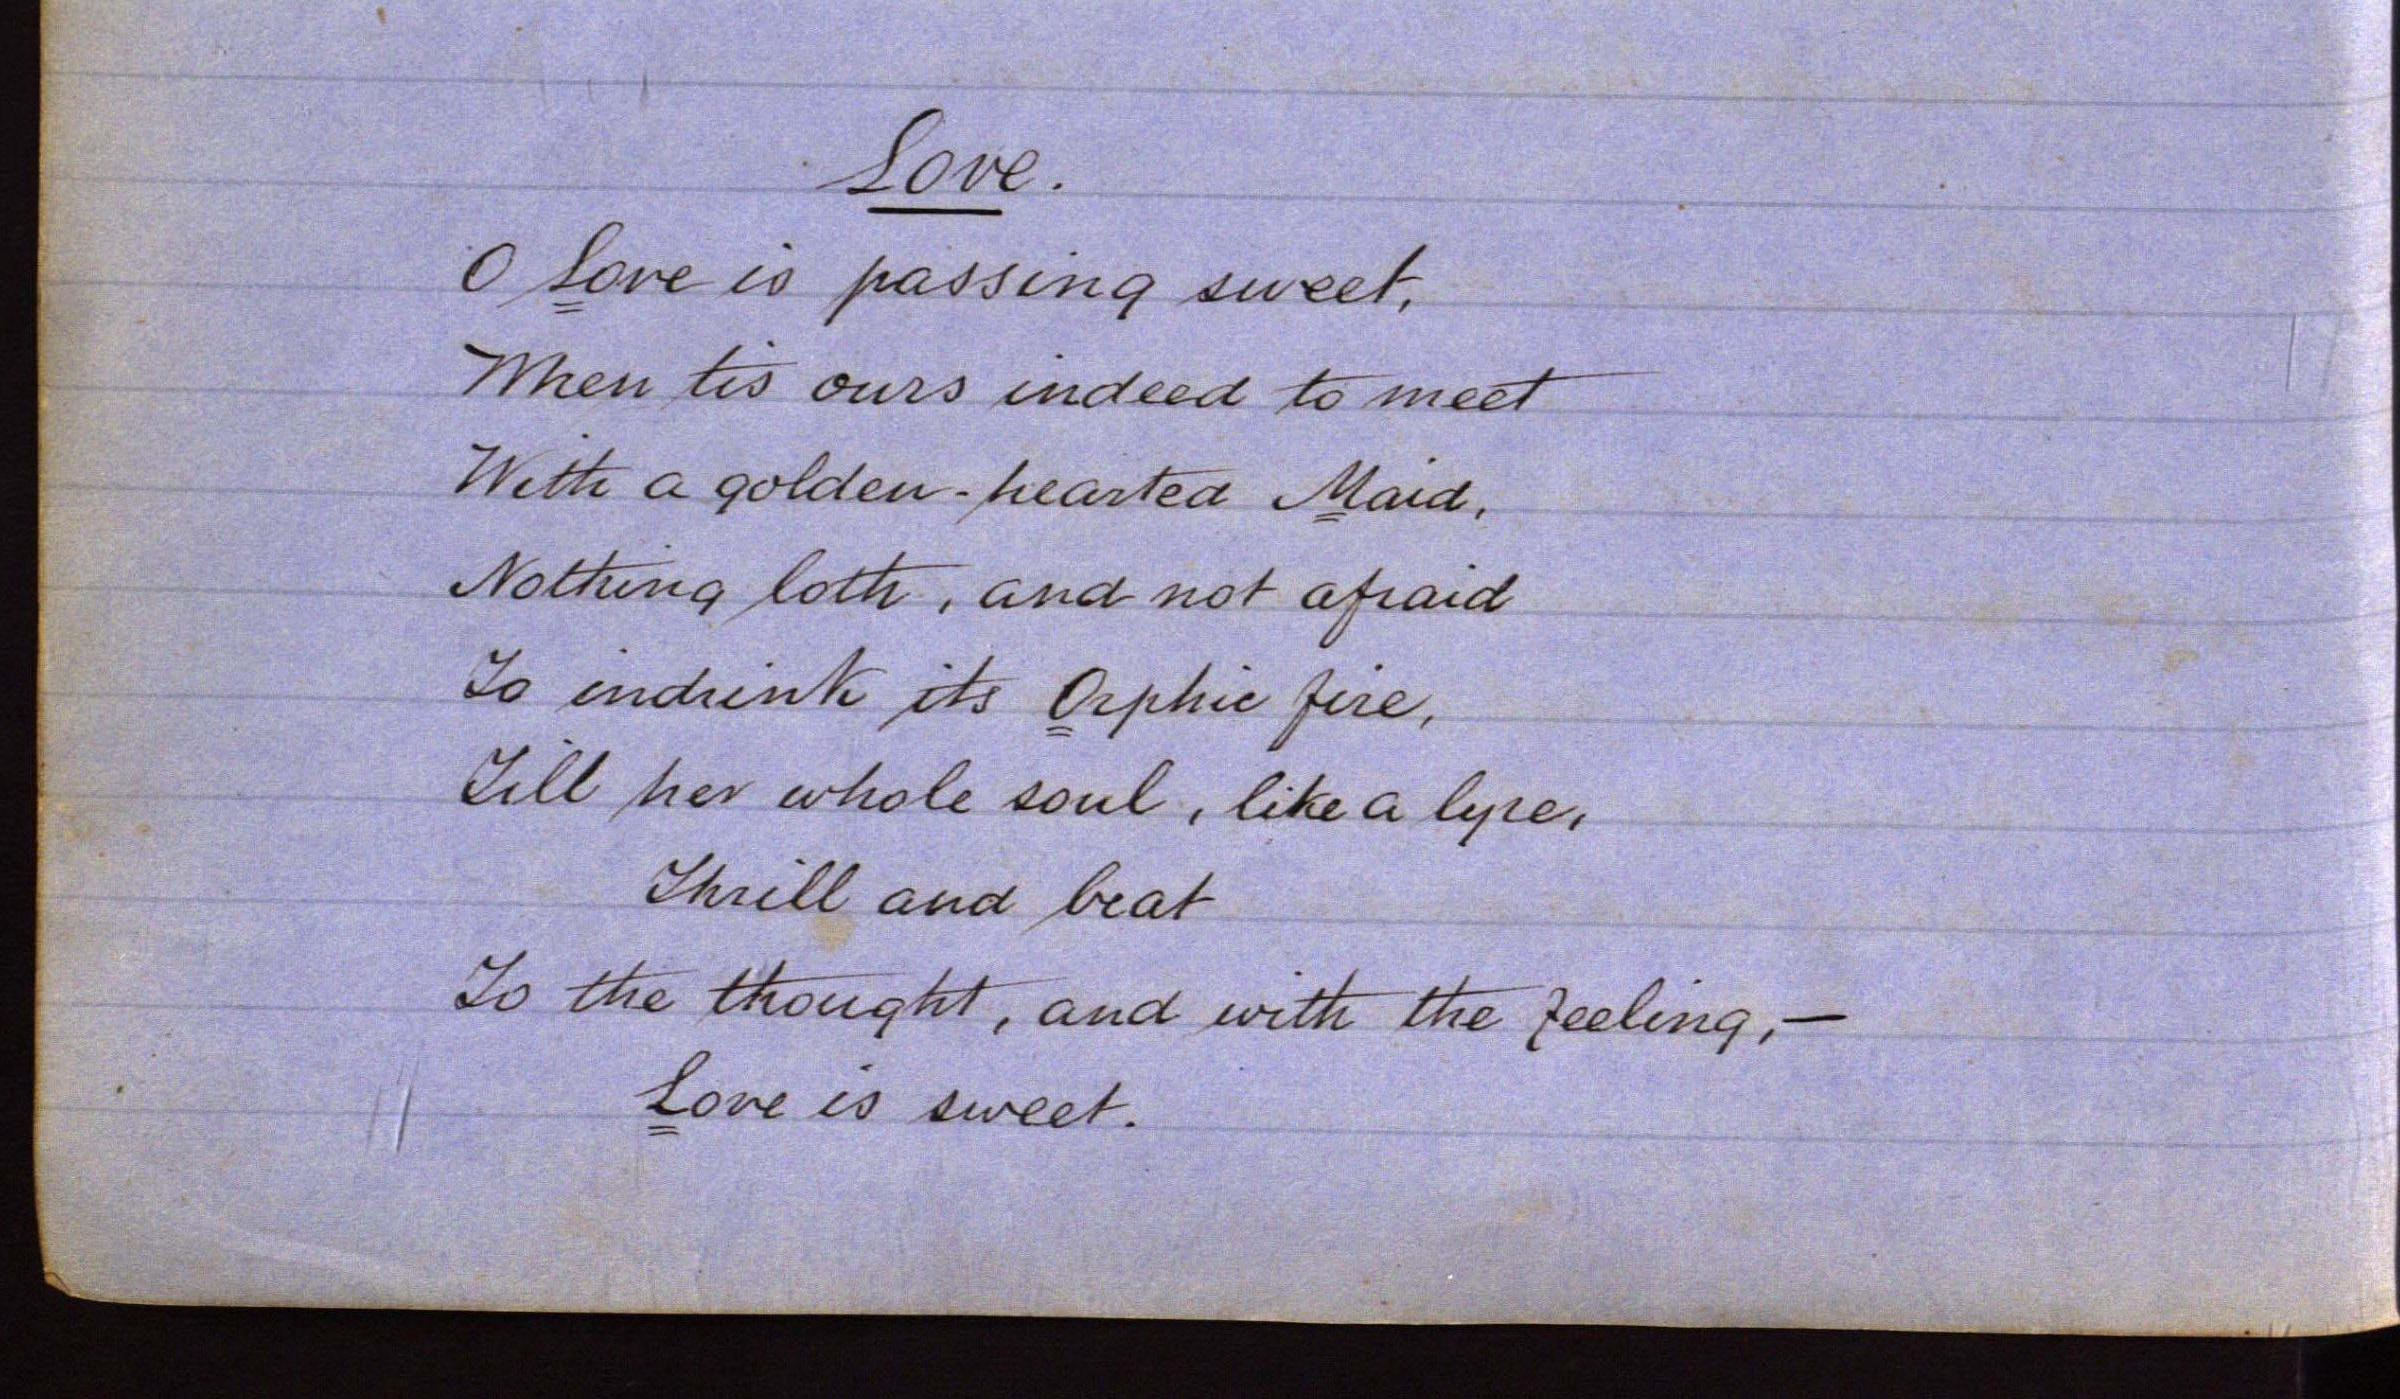 Love.
O Love is passing sweet,
When tis ours indeed to meet
With a golden-hearted Maid,
Nothing loth, and not afraid
To indrink its Orphic fire,
Till her whole soul, like a lyre,
Thrill and beat
To the thought, and with the feeling,—
Love is sweet.